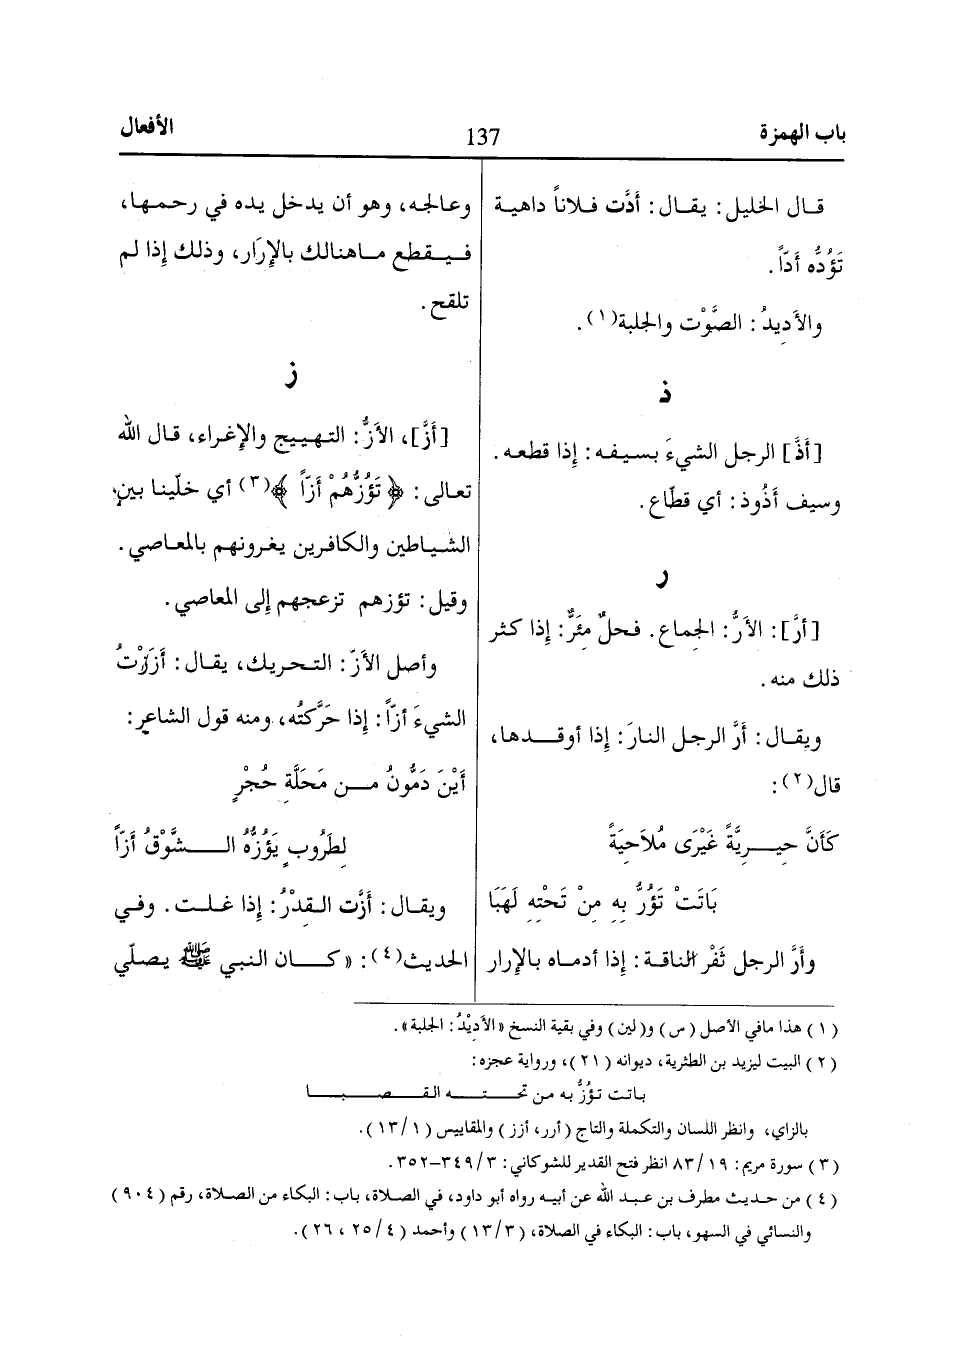 باب الهمزة
137
الأفعال
قال الخليل: يقال: أَدَّت فلاناً داهية
تَؤُدُّه أَدّاً.
والأَديدُ: الصَّوْت والجلبة(١).
ذ
[أَذَّ] الرجل الشيءَ بسيفه: إذا قطعه.
وسيف أَذُوذ: أي قطّاع.
ر
[أرَّ]: الأَرُّ: الجماع. فحلٌ مِئَرٌّ: إذا كثر
ذلك منه.
ويقال: أرَّ الرجل النارَ: إذا أوقدها،
قال(٢):
كَأَنَّ حيرِيَّةً غَيْرَى مُلاَحِيَةً
بَاتَتْ تَؤُرُّ بِهِ مِنْ تَحْتِهِ لَهَبَا
وأَرَّ الرجل ثَفْر الناقة: إذا أدماه بالإِرار
وعالجه، وهو أن يدخل يده في رحمها،
فيقطع ماهنالك بالإِرَار، وذلك إذا لم
تلقح.
ز
[أَزَّ]، الأَزُّ: التهييج والإِغراء، قال الله
تعالى: ﴿تَؤُزُّهُمْ أَزّاً﴾(٣) أي خلّينا بين
الشياطين والكافرين يغرونهم بالمعاصي.
وقيل: تؤزهم تزعجهم إلى المعاصي.
وأصل الأَزّ: التحريك، يقال: أَزَزْتُ
الشيءَ أزّاً: إذا حَرَّكتُه، ومنه قول الشاعر:
أَيْنَ دَمُّونُ مِن مَحَلَّةِ حُجْرٍ
لِطَرُوبٍ يَؤُزُّهُ الشَّوْقُ أَزّاً
ويقال: أَزَّت القِدْرُ: إذا غلت. وفي
الحديث(٤): «كان النبي ﷺ يصلّي
(١) هذا مافي الأصل (س) و(لين) وفي بقية النسخ «الأَدِيْدُ: الجلبة».
(٢) البيت ليزيد بن الطثرية، ديوانه (٢١)، ورواية عجزه:
باتت تؤُزُّ به من تحته القصبا
بالزاي، وانظر اللسان والتكملة والتاج (أرر، أزز) والمقاييس (١/١٣).
(٣) سورة مريم: ١٩/٨٣ انظر فتح القدير للشوكاني: ٣/٣٤٩-٣٥٢.
(٤) من حديث مطرف بن عبد الله عن أبيه رواه أبو داود، في الصلاة، باب: البكاء من الصلاة، رقم (٩٠٤)
والنسائي في السهو، باب: البكاء في الصلاة، (٣/١٣) وأحمد (٤/٢٥، ٢٦).